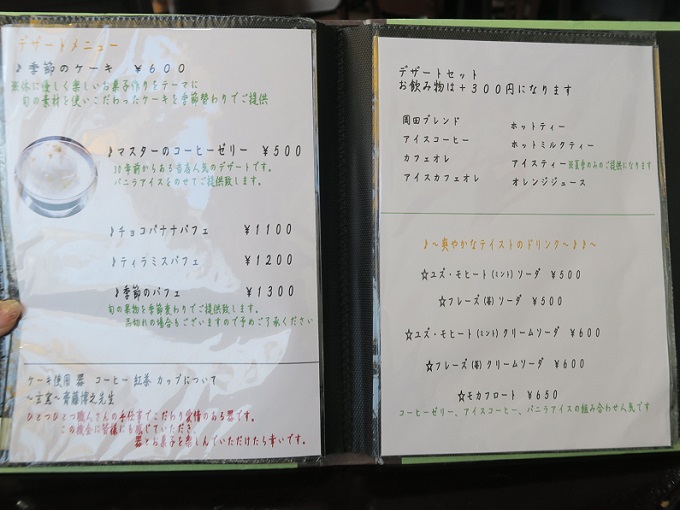 デザートメニュー
♪季節のケーキ ￥600
身体に優しく楽しいお菓子作りをテーマに
旬の素材を使いこだわったケーキを季節替わりでご提供
♪マスターのコーヒーゼリー ￥500
30年前からある当店人気のデザートです。
バニラアイスをのせてご提供致します。
♪チョコバナナパフェ ￥1100
♪ティラミスパフェ ￥1200
♪季節のパフェ ￥1300
旬の果物を季節変わりでご提供致します。
品切れの場合もございますので予めご了承ください
ケーキ使用 器 コーヒー 紅茶 カップについて
齊藤博之先生
ひとつひとつ職人さんの手仕事でこだわり愛情のある器です。
この機会に皆様にも感じていただき
器とお菓子を楽しんでいただけたら幸いです。
デザートセット
お飲み物は＋300円になります
岡田ブレンド
アイスコーヒー
カフェオレ
アイスカフェオレ
ホットティー
ホットミルクティー
アイスティー ※夏季のみのご提供になります
オレンジジュース
♪～爽やかなテイストのドリンク～♪♪～
☆ユズ・モヒート(ミント)ソーダ ￥500
☆フレーズ(苺)ソーダ ￥500
☆ユズ・モヒート(ミント)クリームソーダ ￥600
☆フレーズ(苺)クリームソーダ ￥600
☆モカフロート ￥650
コーヒーゼリー、アイスコーヒー、バニラアイスの組み合わせ人気です